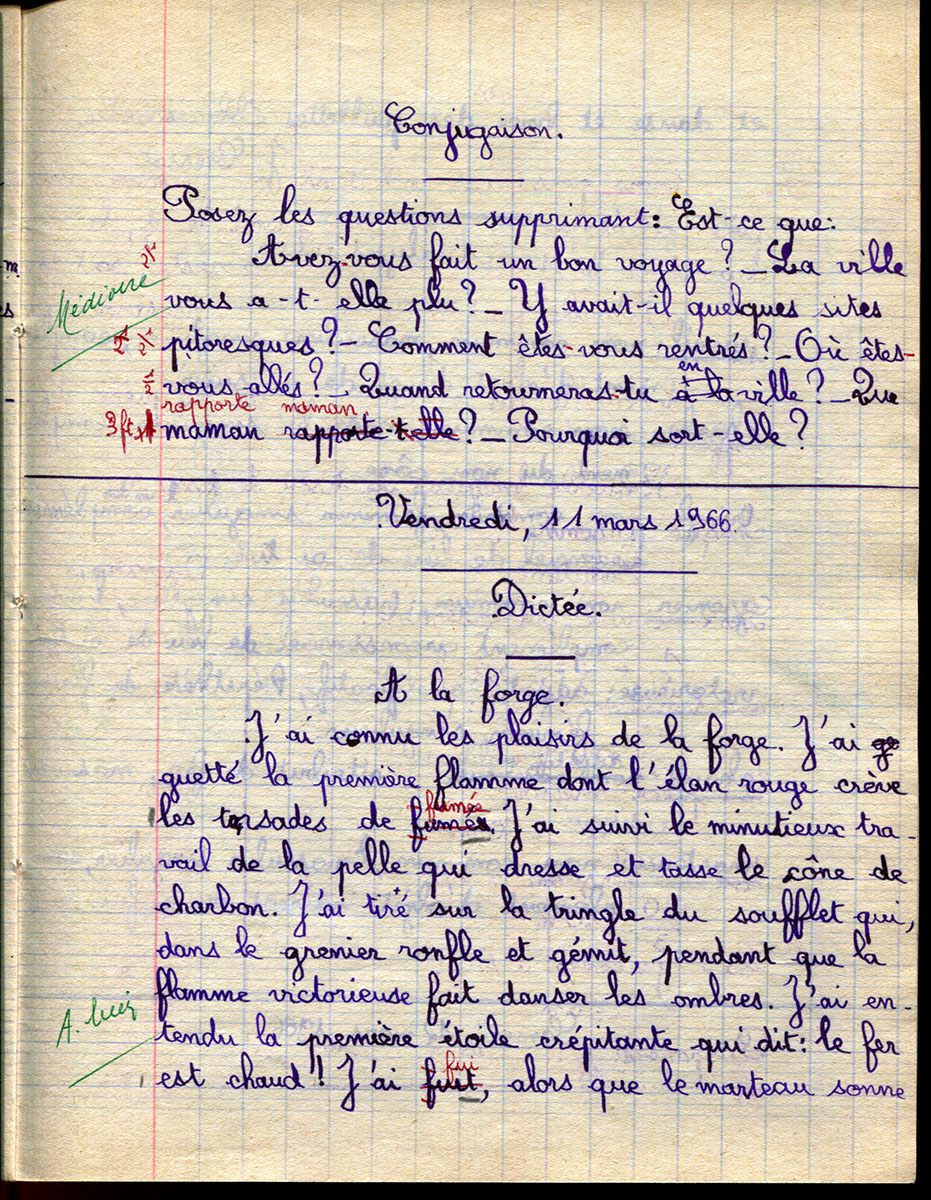 Conjugaison.
Posez les questions supprimant: Est-ce que:
Avez-vous fait un bon voyage? _ La ville
Médiocre
vous a-t-elle plu? _ Y avait-il quelques sites
pitoresques? _ Comment êtes-vous rentrés? _ Où êtes-
en
vous allés? _ Quand retourneras-tu à la ville? _ Que
rapporte maman
3 ft
maman rapporte-t-elle? _ Pourquoi sort-elle?
Vendredi, 11 mars 1966.
Dictée.
A la forge.
J'ai connu les plaisirs de la forge. J'ai ge
guetté la première flamme dont l'élan rouge crève
fumée
les torsades de fumés. J'ai suivi le minutieux tra-
vail de la pelle qui dresse et tasse le cône de
charbon. J'ai tiré sur la tringle du soufflet qui,
dans le grenier ronfle et gémit, pendant que la
flamme victorieuse fait danser les ombres. J'ai en-
A. bien
tendu la première étoile crépitante qui dit: le fer
fui
est chaud! J'ai fuit, alors que le marteau sonne